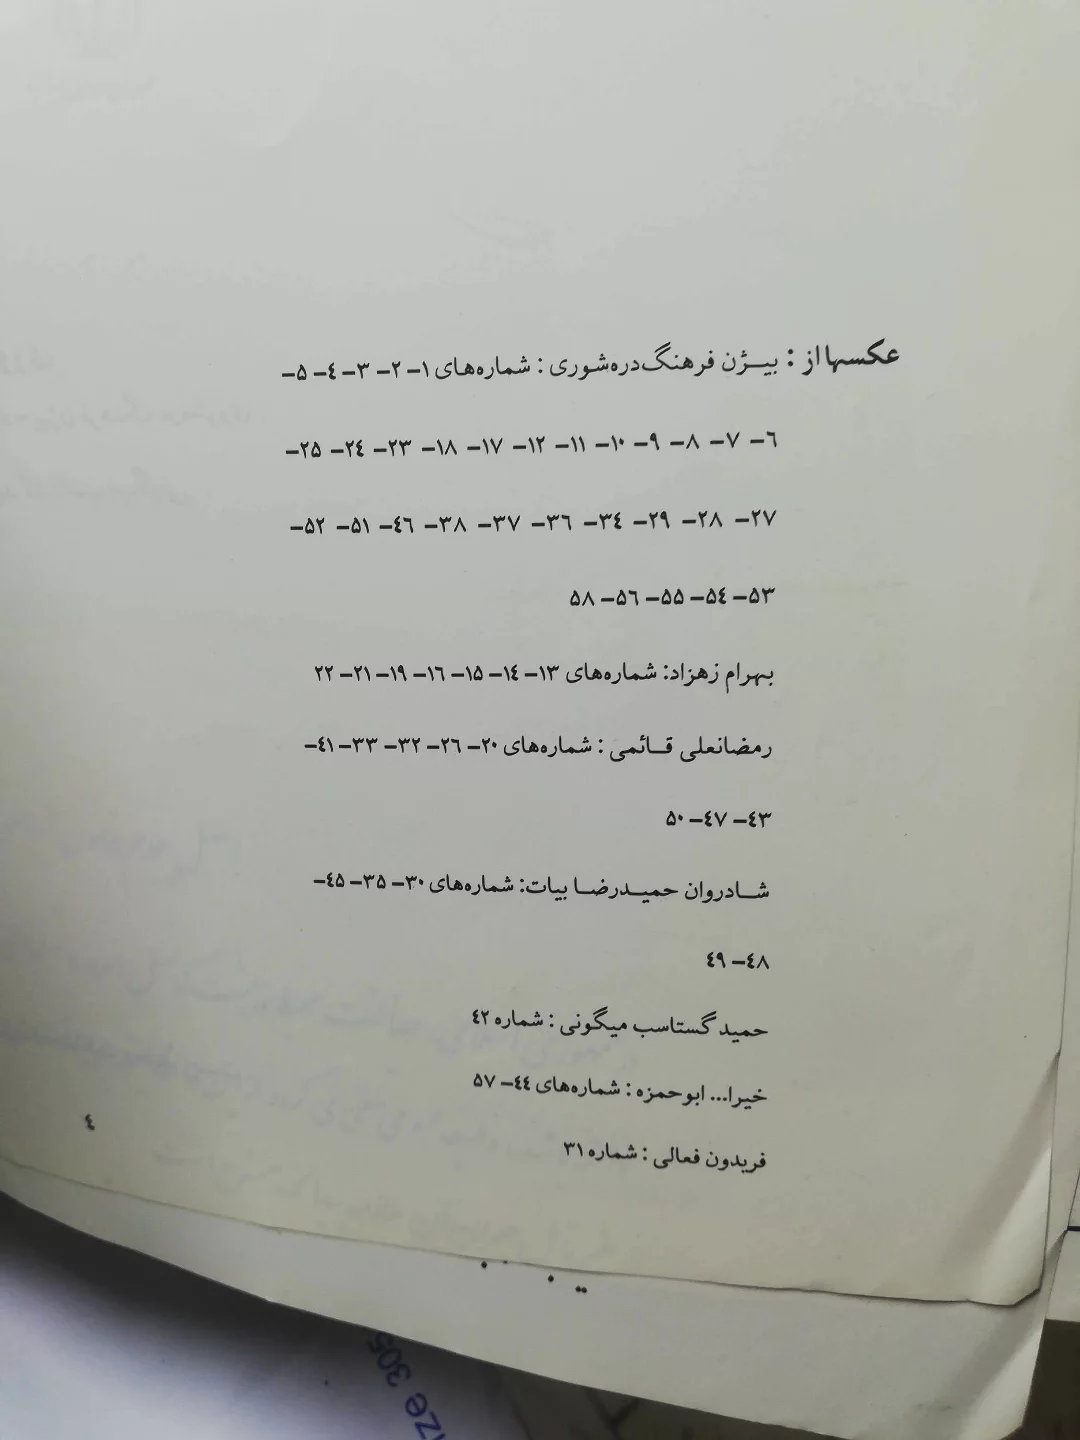 عکسها از : بیـژن فرهنگ‌دره‌شوری : شماره‌های ۱– ۲– ۳– ٤– ۵–
٦– ۷– ۸– ۹– ۱۰– ۱۱– ۱۲– ۱۷– ۱۸– ۲۳– ۲٤– ۲۵–
۲۷– ۲۸– ۲۹– ۳٤– ۳٦– ۳۷– ۳۸– ٤٦– ۵۱– ۵۲–
۵۳– ۵٤– ۵۵– ۵٦– ۵۸
بهرام زهزاد: شماره‌های ۱۳– ۱٤– ۱۵– ۱٦– ۱۹– ۲۱– ۲۲
رمضانعلی قـائمی : شماره‌های ۲۰– ۲٦– ۳۲– ۳۳– ٤۱–
٤۳– ٤۷– ۵۰
شـادروان حمیـدرضـا بیات: شماره‌های ۳۰– ۳۵– ٤۵–
٤۸– ٤۹
حمید گستاسب میگونی : شماره ٤۲
خیرا... ابوحمزه : شماره‌های ٤٤– ۵۷
فریدون فعالی : شماره ۳۱
٤
305